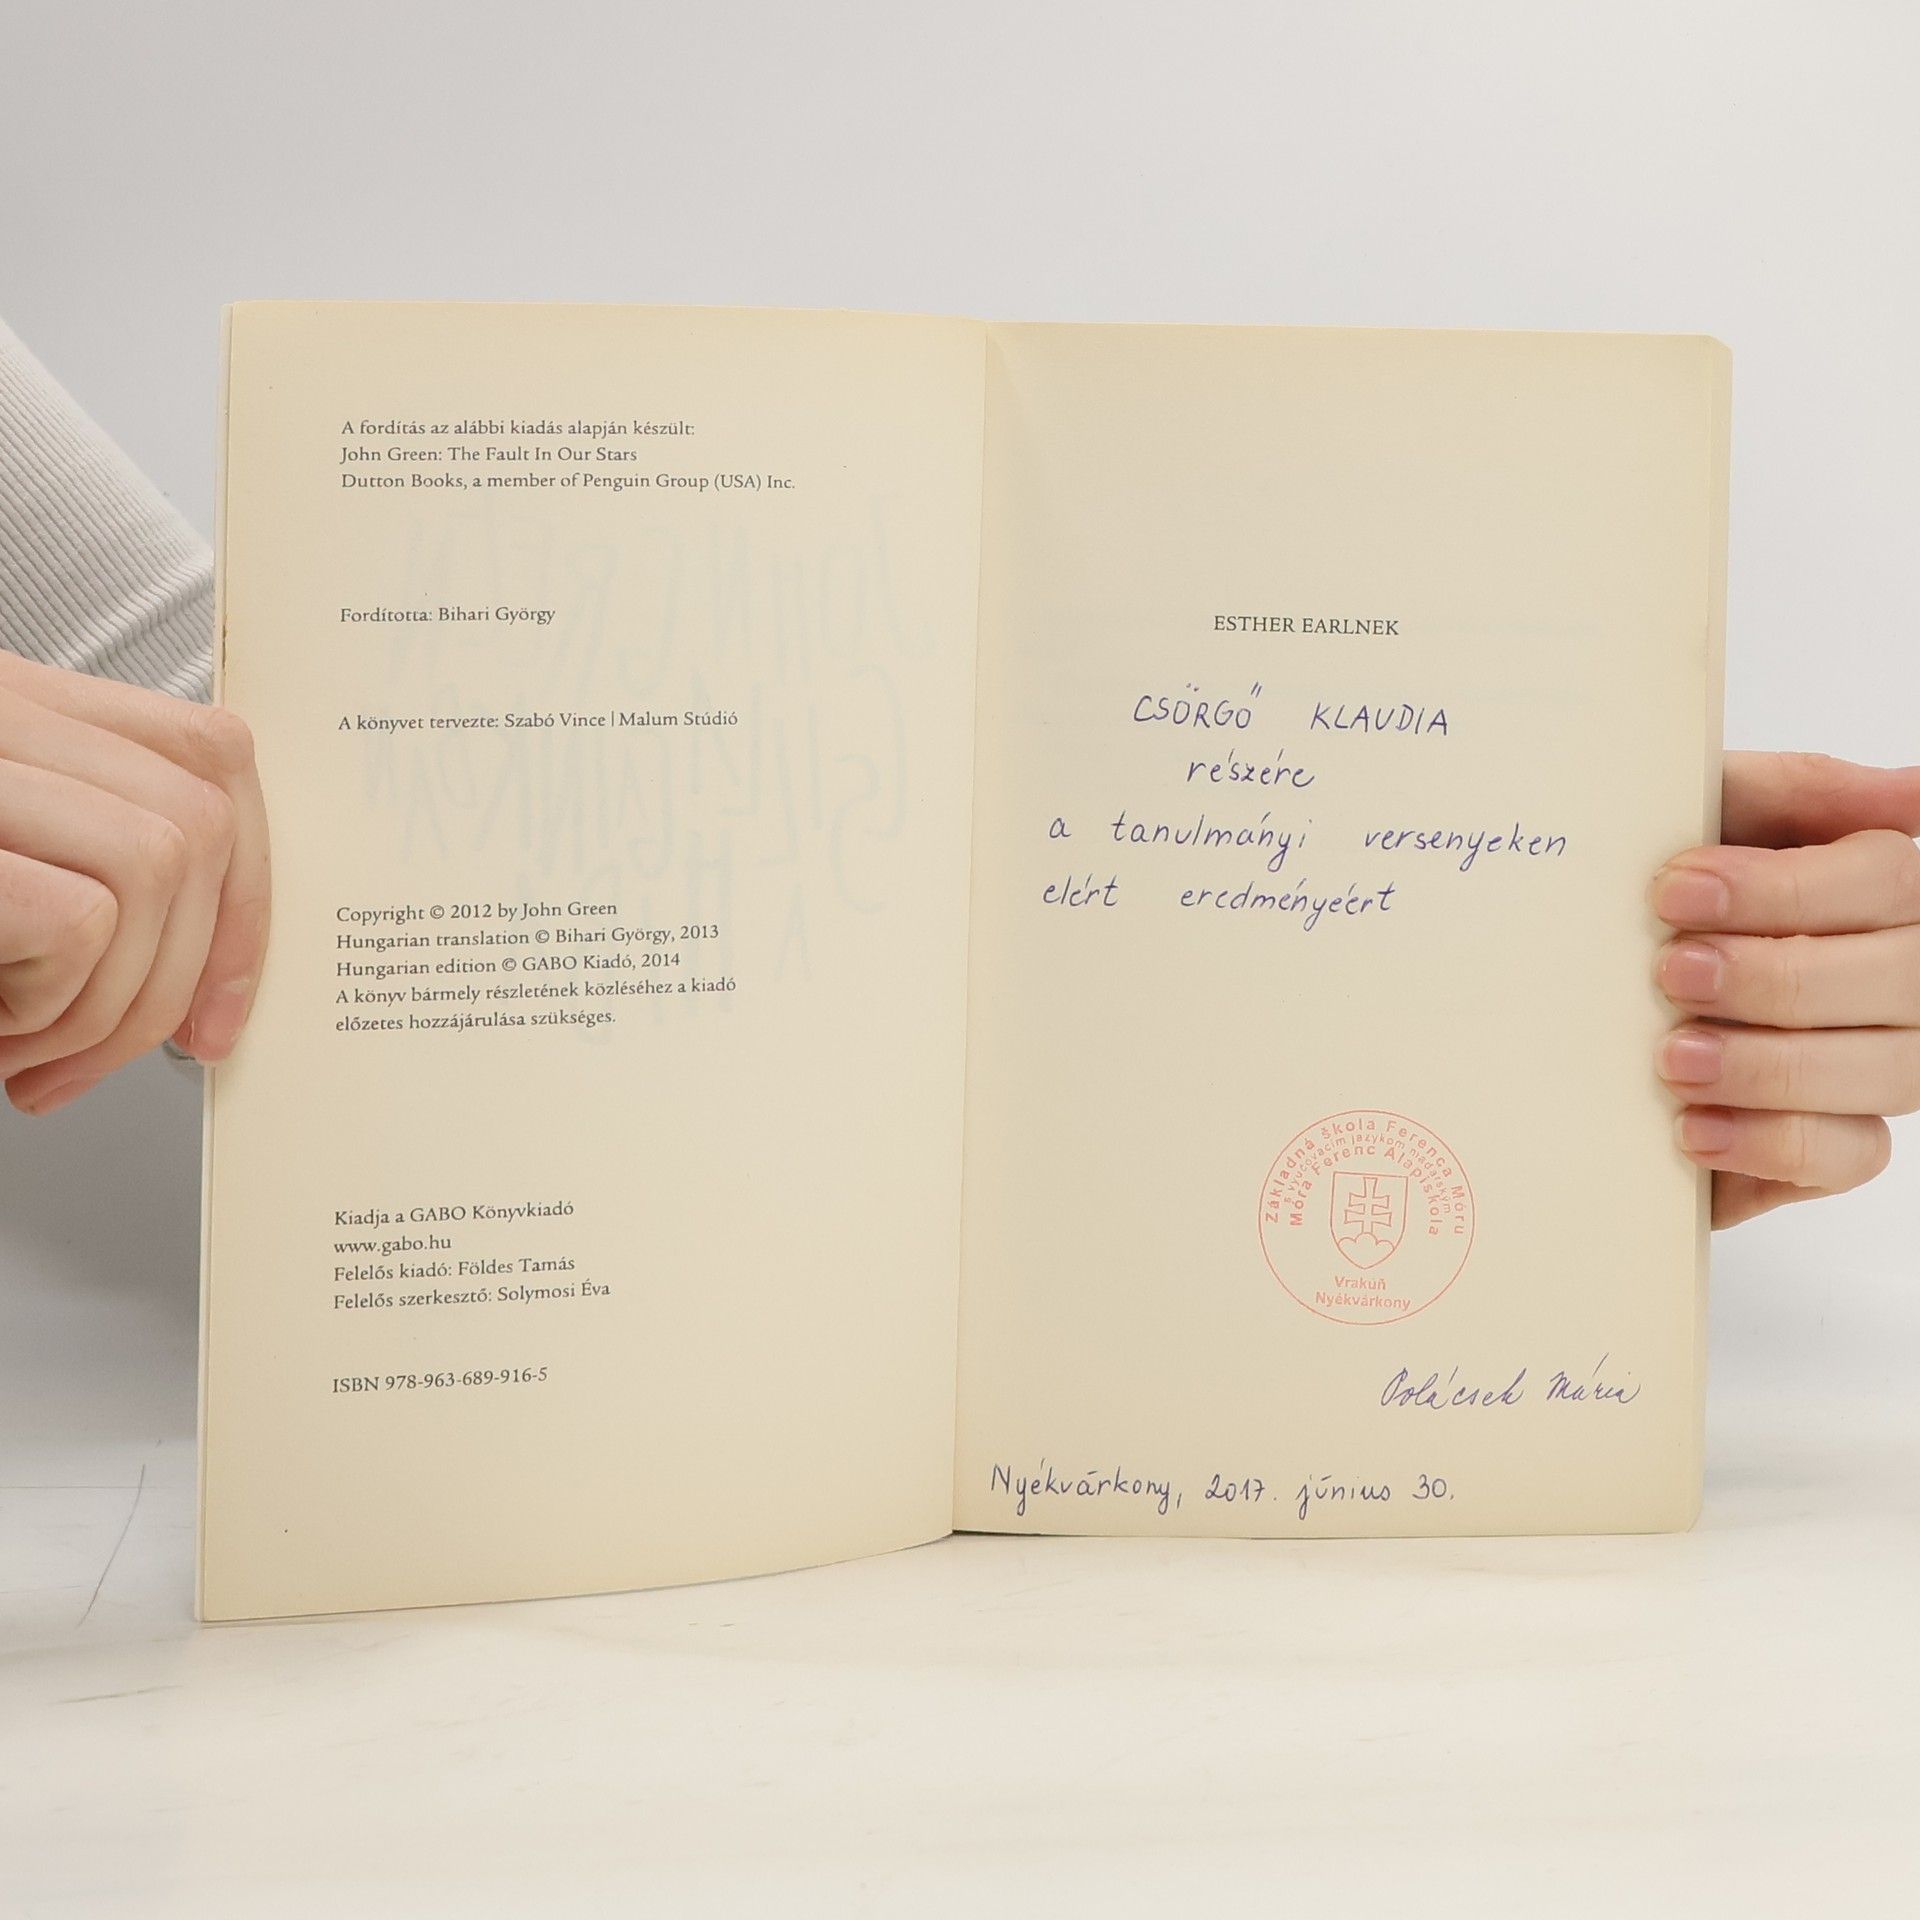 A fordítás az alábbi kiadás alapján készült:
John Green: The Fault In Our Stars
Dutton Books, a member of Penguin Group (USA) Inc.
Fordította: Bihari György
A könyvet tervezte: Szabó Vince | Malum Stúdió
Copyright © 2012 by John Green
Hungarian translation © Bihari György, 2013
Hungarian edition © GABO Kiadó, 2014
A könyv bármely részletének közléséhez a kiadó
előzetes hozzájárulása szükséges.
Kiadja a GABO Könyvkiadó
www.gabo.hu
Felelős kiadó: Földes Tamás
Felelős szerkesztő: Solymosi Éva
ISBN 978-963-689-916-5
ESTHER EARLNEK
CSÖRGŐ KLAUDIA
részére
a tanulmányi versenyeken
elért eredményéért
Základná škola Ferenca Móru
s vyučovacím jazykom maďarským
Móra Ferenc Alapiskola
Vrakúň
Nyékvárkony
Polácsek Mária
Nyékvárkony, 2017. június 30.